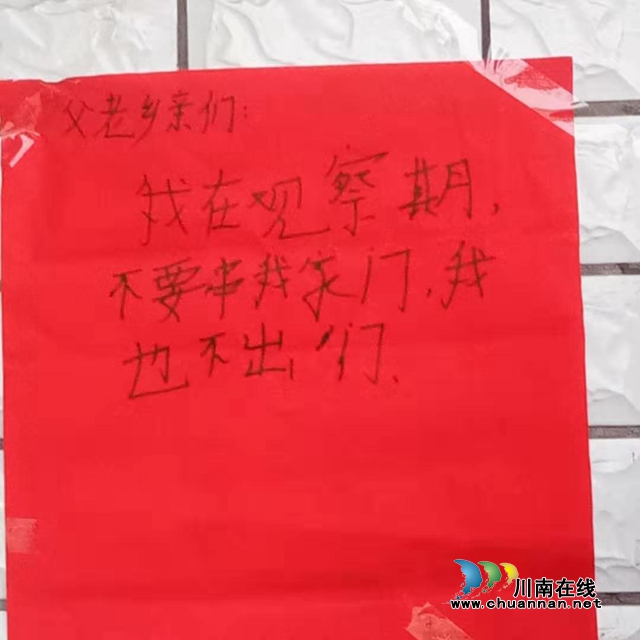 父老乡亲们:
我在观察期,
不要串我家门,我
也不出们.
川南在线
www.chuannan.net